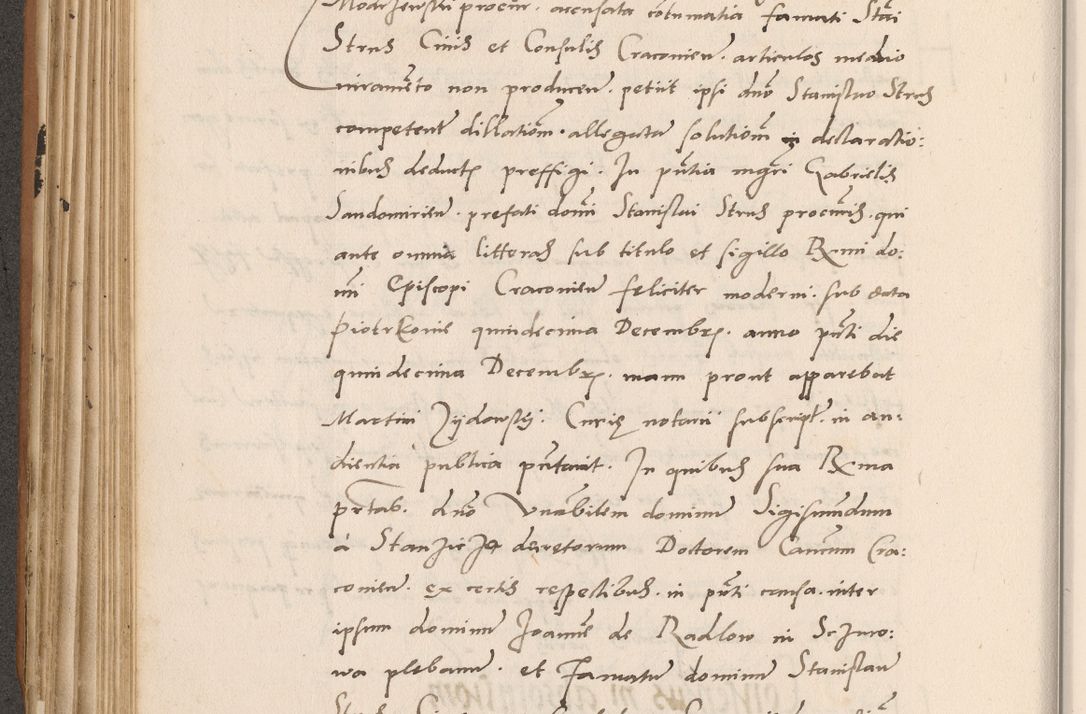 Modrzewski procur. accusata cotumatia famati Stāi
Strus Civis et Consulis Craconien. articulos medio
iuramēto non producen. petiit ipsi dnō Stanislao Strus
competentē dillationē allegatā solutionē in declaratio:
nibus deduct. preffigi. In pn̄tia mgri Gabrielis
Sandomirien. prefati domī Stanislai Strus procuris. qui
ante omnia litteras sub titulo et sigillo Rx̄mi do:
mī Episcopi Craconien feliciter moderni. sub data
Piotrkoviē quindecima Decembrς. anno pn̄ti die
quindecima Decembrς. manu prout apparebat
Martini Zÿdowskÿ. Curię notarii subscript. in au:
dientia publica pn̄tavit. In quibus sua Rx̄ma
prtab. dnō Vnābilem dominū Sigismundum
à Stanzicze decretorum Doctorem Canūm Cra:
conien. ex certis respectibus. in pn̄ti causa. inter
ipsum dominū Joannē de Radlow in Sczuro:
wa plebanū. et Famatū dominū Stanislaū